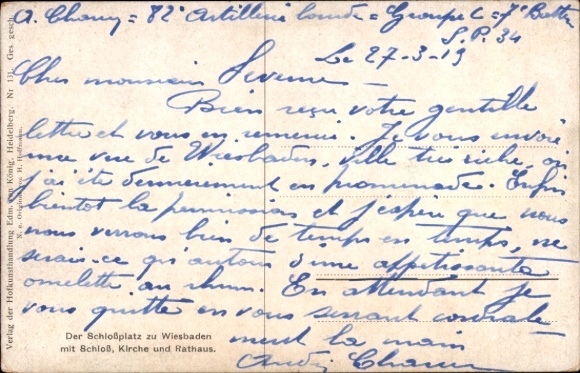 A. Chamy = 82e Artillerie lourde = Groupe C = 7e Batterie
S.P. 34
Le 27-3-19
Cher monsieur
Bien reçu votre gentille
lettre et vous en remercie. Je vous envoie
une vue de Wiesbaden, ville très riche, où
j'ai été dernièrement en promenade. Enfin
bientôt la permission et j'espère que nous
nous verrons bien de temps en temps, ne
serait-ce qu'autour d'une appétissante
omelette au rhum. En attendant je
vous quitte en vous serrant cordiale-
ment la main
Verlag der Hofkunsthandlung Edm. von König, Heidelberg. Nr 131. Ges. gesch.
N. e. Original von H. Hoffmann.
Der Schloßplatz zu Wiesbaden
mit Schloß, Kirche und Rathaus.